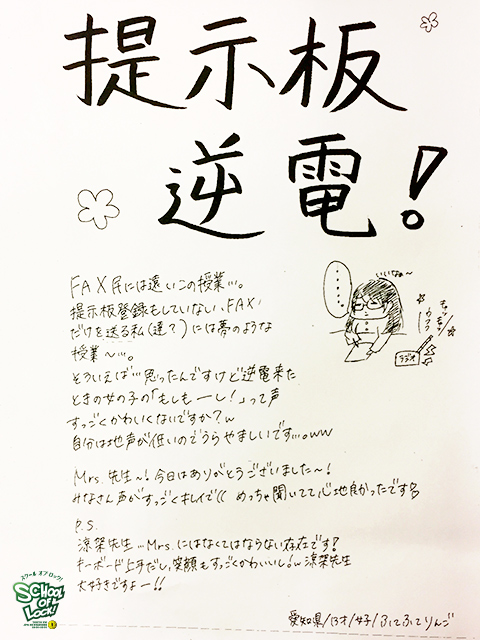 提示板
逆電!
FAX民には遠いこの授業…。
提示板登録もしていない、FAX
だけを送る私(達?)には夢のような
授業〜…。
そういえば…思ったんですけど逆電来た
ときの女の子の「もしもーし!」って声
すっごくかわいくないですか?w
自分は地声が低いのでうらやましいです…。ww
Mrs.先生〜!今日はありがとうございました〜!
みなさん声がすっごくキレイで(( めっちゃ聞いてて心地良かったです
P.S.
涼架先生…Mrs.にはなくてはならない存在です!
キーボード上手だし、笑顔もすっごくかわいいし!w 涼架先生
大好きですよー!!
愛知県/13才/女子/ふてふてりんご
いいなぁ〜
......
ラジオ
スクール オブ ロック!
SCHOOL
OF
LOCK!